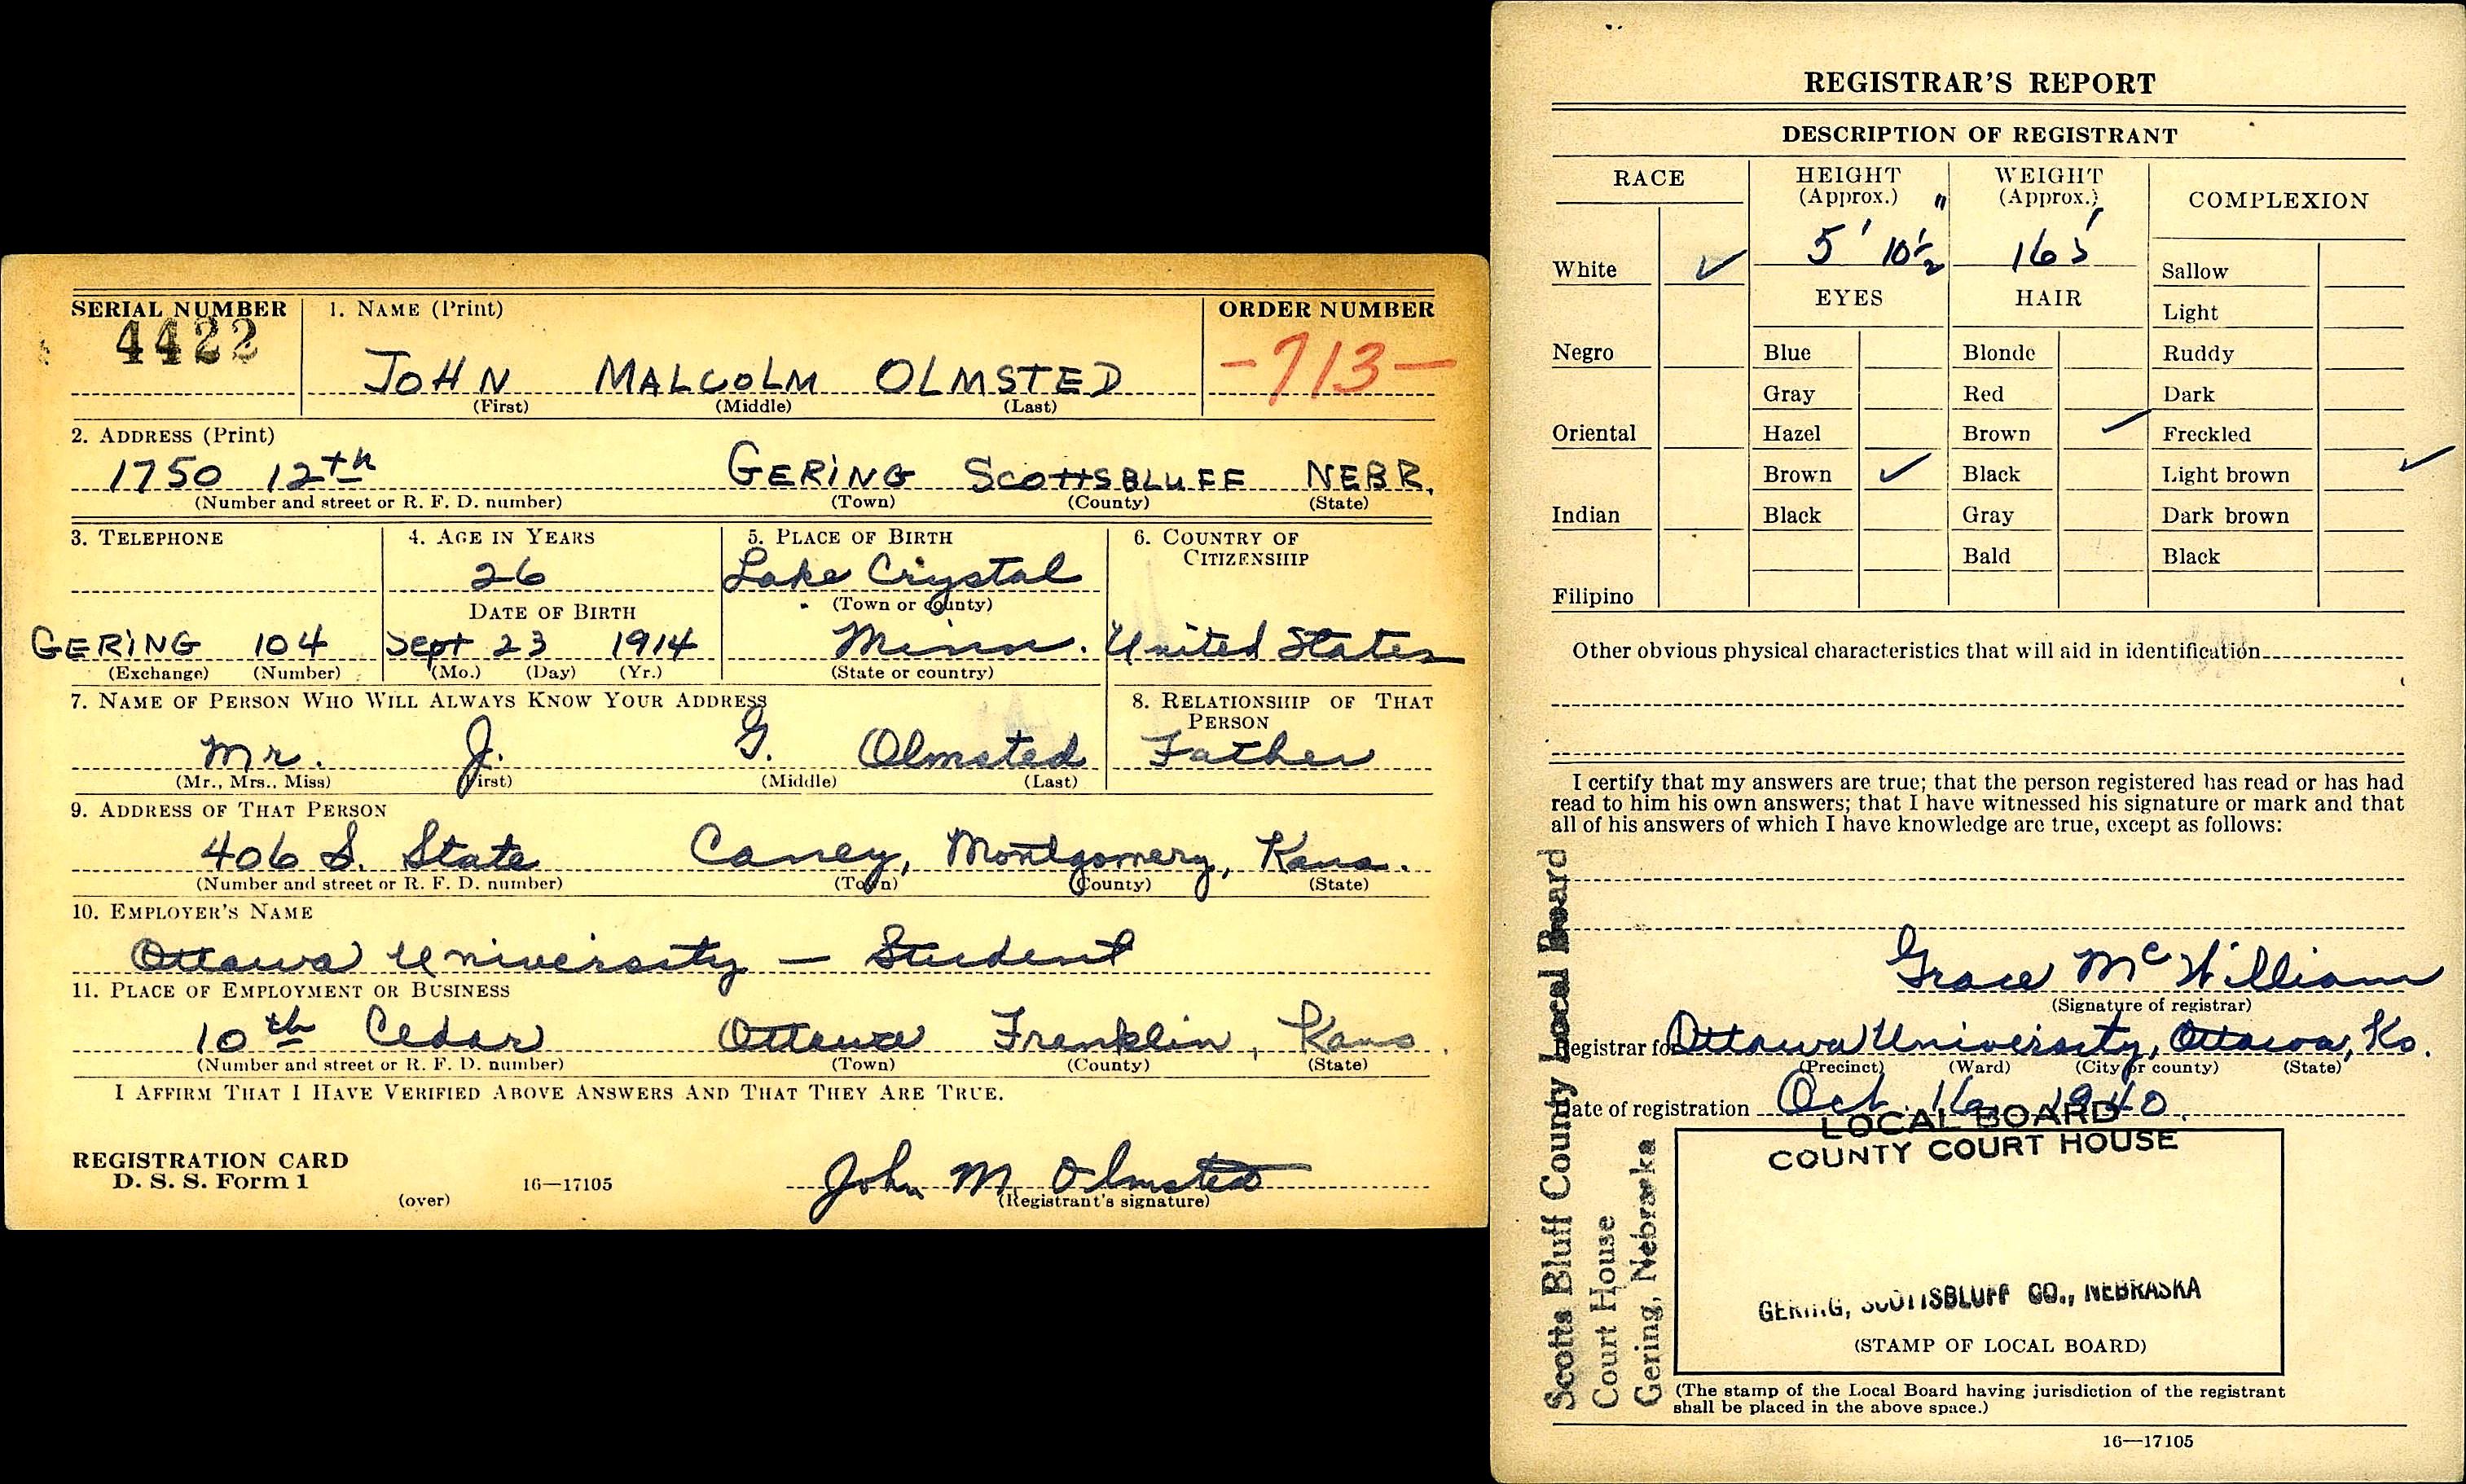 SERIAL NUMBER 1. NAME (Print) ORDER NUMBER
4422 JOHN MALCOLM OLMSTED -713-
(First) (Middle) (Last)
2. ADDRESS (Print)
1750 12th GERING SCOTTSBLUFF NEBR.
(Number and street or R. F. D. number) (Town) (County) (State)
3. TELEPHONE 4. AGE IN YEARS 5. PLACE OF BIRTH 6. COUNTRY OF CITIZENSHIP
26 Lake Crystal
DATE OF BIRTH (Town or county)
GERING 104 Sept 23 1914 Minn. United States
(Exchange) (Number) (Mo.) (Day) (Yr.) (State or country)
7. NAME OF PERSON WHO WILL ALWAYS KNOW YOUR ADDRESS 8. RELATIONSHIP OF THAT PERSON
Mr. J. G. Olmsted Father
(Mr., Mrs., Miss) (First) (Middle) (Last)
9. ADDRESS OF THAT PERSON
406 S. State Caney, Montgomery, Kans.
(Number and street or R. F. D. number) (Town) (County) (State)
10. EMPLOYER'S NAME
Ottawa University — Student
11. PLACE OF EMPLOYMENT OR BUSINESS
10th Cedar Ottawa Franklin, Kans.
(Number and street or R. F. D. number) (Town) (County) (State)
I AFFIRM THAT I HAVE VERIFIED ABOVE ANSWERS AND THAT THEY ARE TRUE.
REGISTRATION CARD
D. S. S. Form 1
(over) 16—17105
John M Olmsted
(Registrant's signature)
REGISTRAR'S REPORT
DESCRIPTION OF REGISTRANT
RACE HEIGHT (Approx.) WEIGHT (Approx.) COMPLEXION
5' 10½" 165
White ✓ EYES HAIR Sallow
Light
Negro Blue Blonde Ruddy
Gray Red Dark
Oriental Hazel Brown ✓ Freckled
Brown ✓ Black Light brown ✓
Indian Black Gray Dark brown
Bald Black
Filipino
Other obvious physical characteristics that will aid in identification
I certify that my answers are true; that the person registered has read or has had
read to him his own answers; that I have witnessed his signature or mark and that
all of his answers of which I have knowledge are true, except as follows:
Grace McWilliam
(Signature of registrar)
Registrar for Ottawa University, Ottawa, Ks.
(Precinct) (Ward) (City or county) (State)
Date of registration Oct. 16, 1940.
LOCAL BOARD
COUNTY COURT HOUSE
GERING, SCOTTSBLUFF CO., NEBRASKA
(STAMP OF LOCAL BOARD)
(The stamp of the Local Board having jurisdiction of the registrant
shall be placed in the above space.)
16—17105
Scotts Bluff County Local Board
Court House
Gering, Nebraska